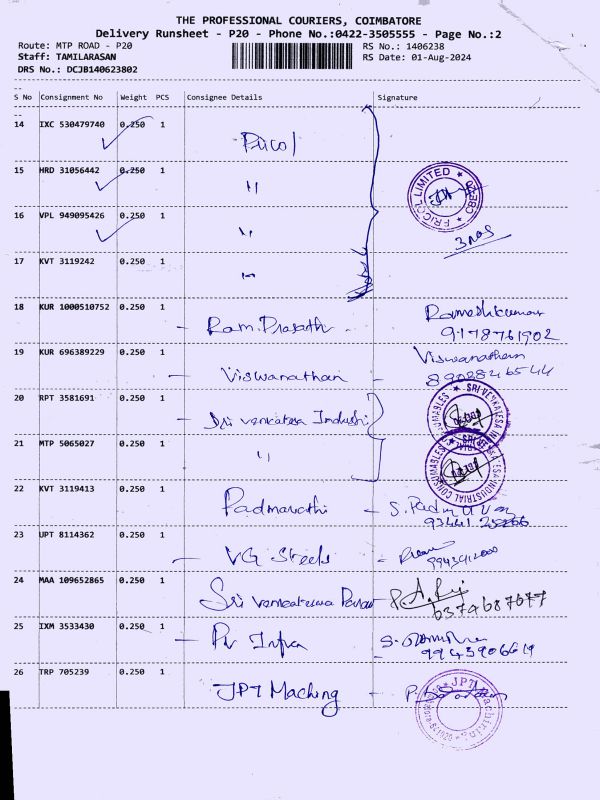 THE PROFESSIONAL COURIERS, COIMBATORE
Delivery Runsheet - P20 - Phone No.:0422-3505555 - Page No.:2
Route: MTP ROAD - P20
RS No.: 1406238
Staff: TAMILARASAN
RS Date: 01-Aug-2024
DRS No.: DCJB140623802
S No Consignment No Weight PCS Consignee Details Signature
14 IXC 530479740 0.250 1 Pricol
15 HRD 31056442 0.250 1 "
FRICOL LIMITED
16 VPL 949095426 0.250 1 "
3 nos
17 KVT 3119242 0.250 1 "
18 KUR 1000510752 0.250 1 - Ram. Prasath. Rameshkumar
9178761902
19 KUR 696389229 0.250 1 - Viswanathan Viswanathan
8902826544
20 RPT 3581691 0.250 1 - Sri venkatesa Industri
21 MTP 5065027 0.250 1 "
SRI VENKATESA INDUSTRIAL CONSUMABLES
22 KVT 3119413 0.250 1 Padmavathi - S. Padmavathi
23 UPT 8114362 0.250 1 - VG Steels
9943912000
24 MAA 109652865 0.250 1 Sri venkateswa
6374687677
25 IXM 3533430 0.250 1 - PV Infra
9943906619
26 TRP 705239 0.250 1 - JPT Maching - P.
JPT Machining